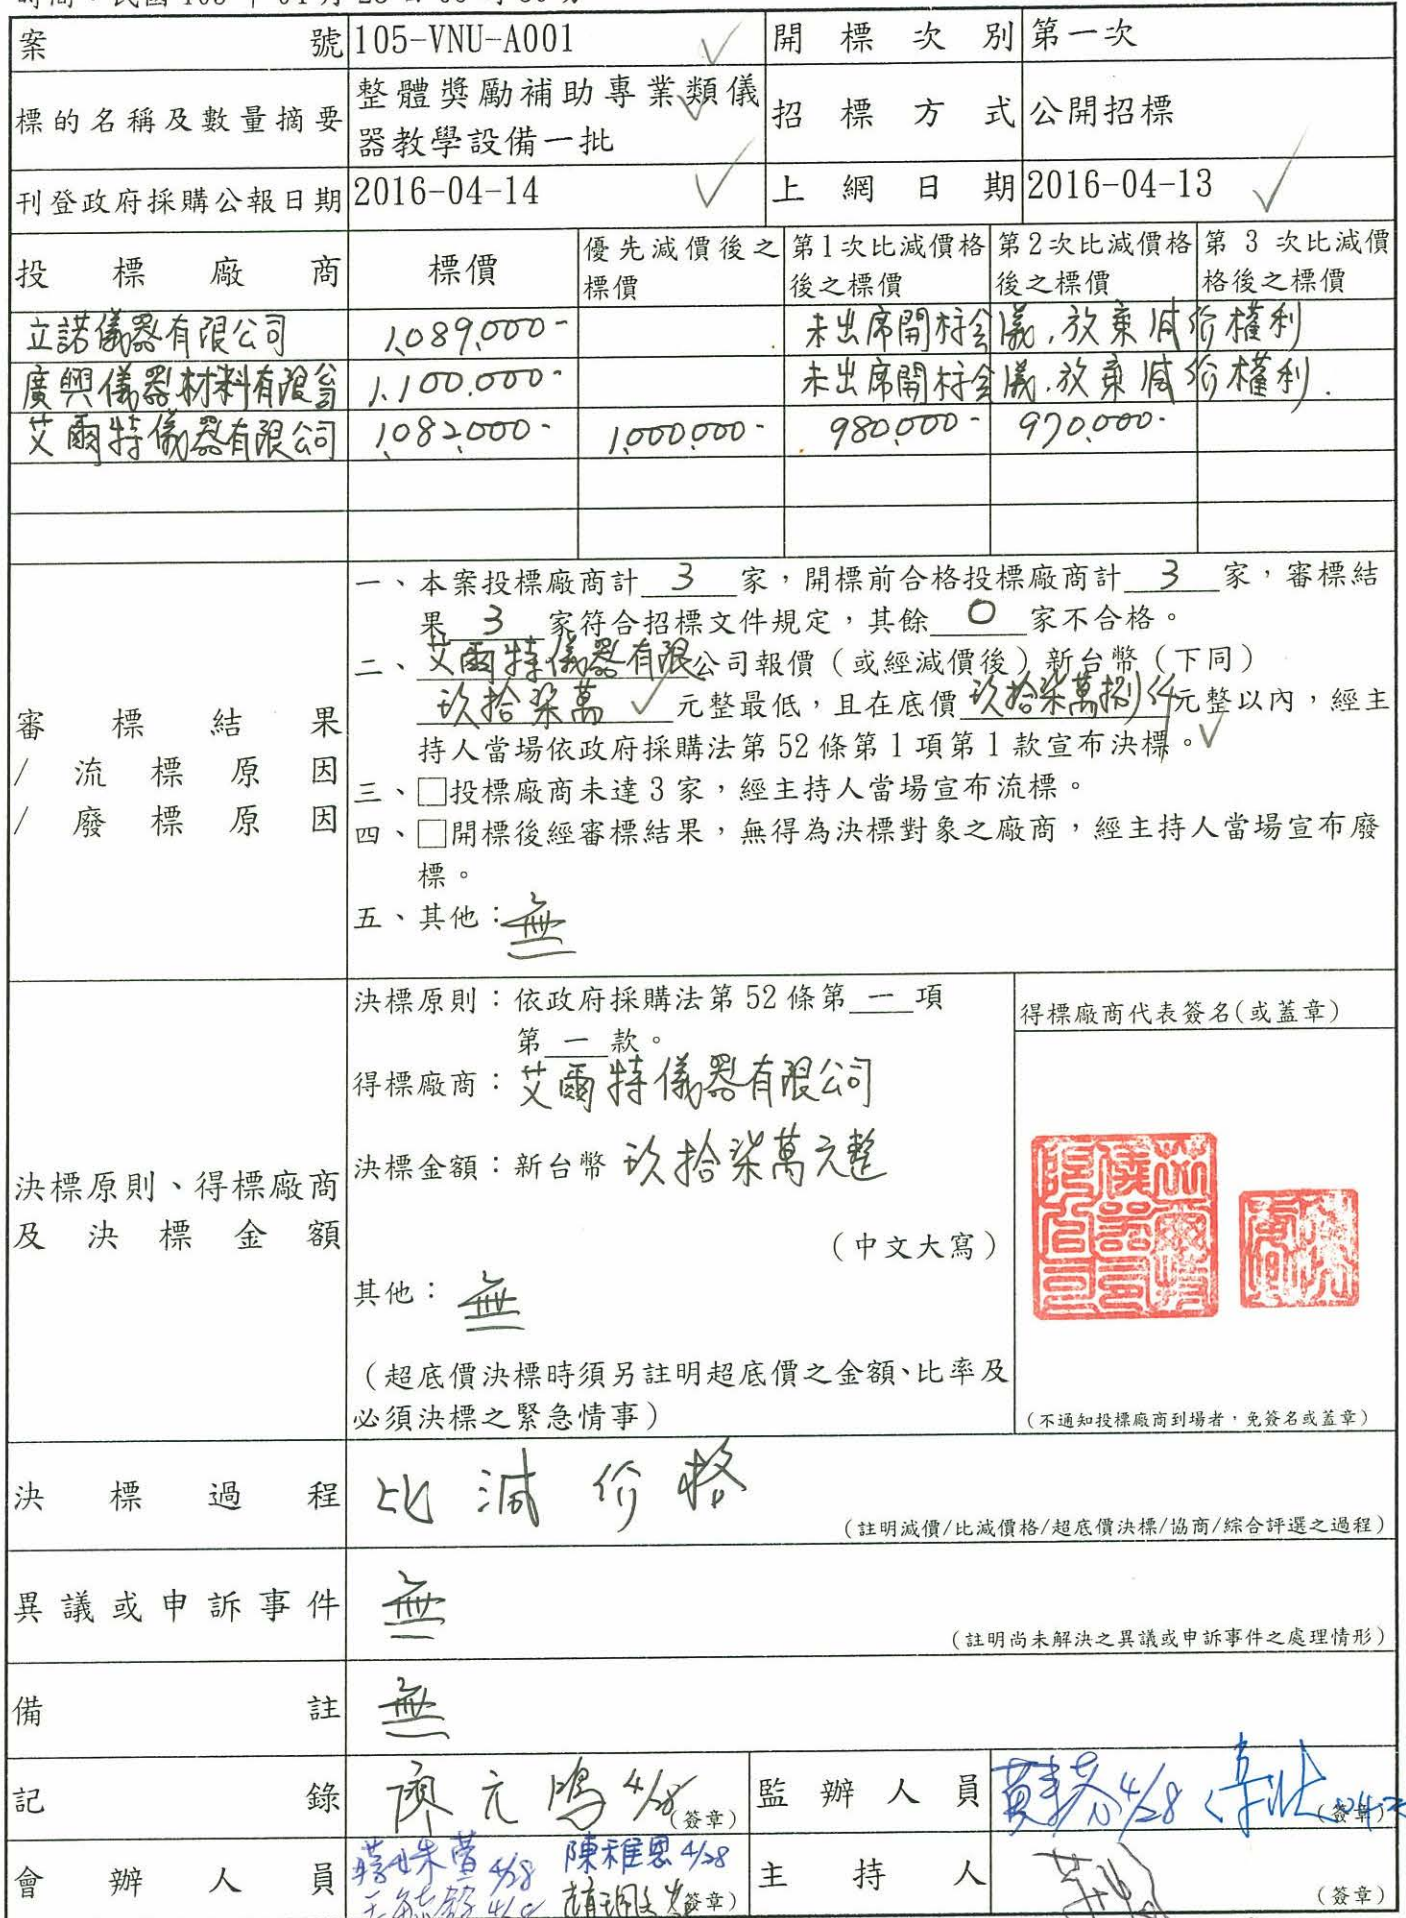 案號 105-VNU-A001 開標次別 第一次
標的名稱及數量摘要 整體獎勵補助專業類儀
器教學設備一批
招標方式 公開招標
刊登政府採購公報日期 2016-04-14 上網日期 2016-04-13
投標廠商 標價 優先減價後之
標價
第1次比減價格
後之標價
第2次比減價格
後之標價
第 3 次比減價
格後之標價
立諾儀器有限公司 1,089,000- 未出席開標會議,放棄減价權利
廣興儀器材料有限公司 1,100,000- 未出席開標會議,放棄減价權利.
艾爾特儀器有限公司 1,082,000- 1,000,000- 980,000- 970,000-
審標結果
/流標原因
/廢標原因
一、本案投標廠商計 3 家,開標前合格投標廠商計 3 家,審標結
果 3 家符合招標文件規定,其餘 0 家不合格。
二、艾爾特儀器有限公司報價(或經減價後)新台幣(下同)
玖拾柒萬 元整最低,且在底價玖拾柒萬捌仟元整以內,經主
持人當場依政府採購法第 52 條第 1 項第 1 款宣布決標。
三、□投標廠商未達 3 家,經主持人當場宣布流標。
四、□開標後經審標結果,無得為決標對象之廠商,經主持人當場宣布廢
標。
五、其他:無
決標原則、得標廠商
及決標金額
決標原則:依政府採購法第 52 條第 一 項
第 一 款。
得標廠商:艾爾特儀器有限公司
決標金額:新台幣 玖拾柒萬元整
(中文大寫)
其他:無
(超底價決標時須另註明超底價之金額、比率及
必須決標之緊急情事)
得標廠商代表簽名(或蓋章)
艾爾特儀器有限公司
(不通知投標廠商到場者,免簽名或蓋章)
決標過程 比減价格
(註明減價/比減價格/超底價決標/協商/綜合評選之過程)
異議或申訴事件 無
(註明尚未解決之異議或申訴事件之處理情形)
備註 無
記錄 廖元鴻 4/28 (簽章) 監辦人員 4/28 (簽章)
會辦人員 4/28 陳稚恩 4/28 (簽章) 主持人 (簽章)